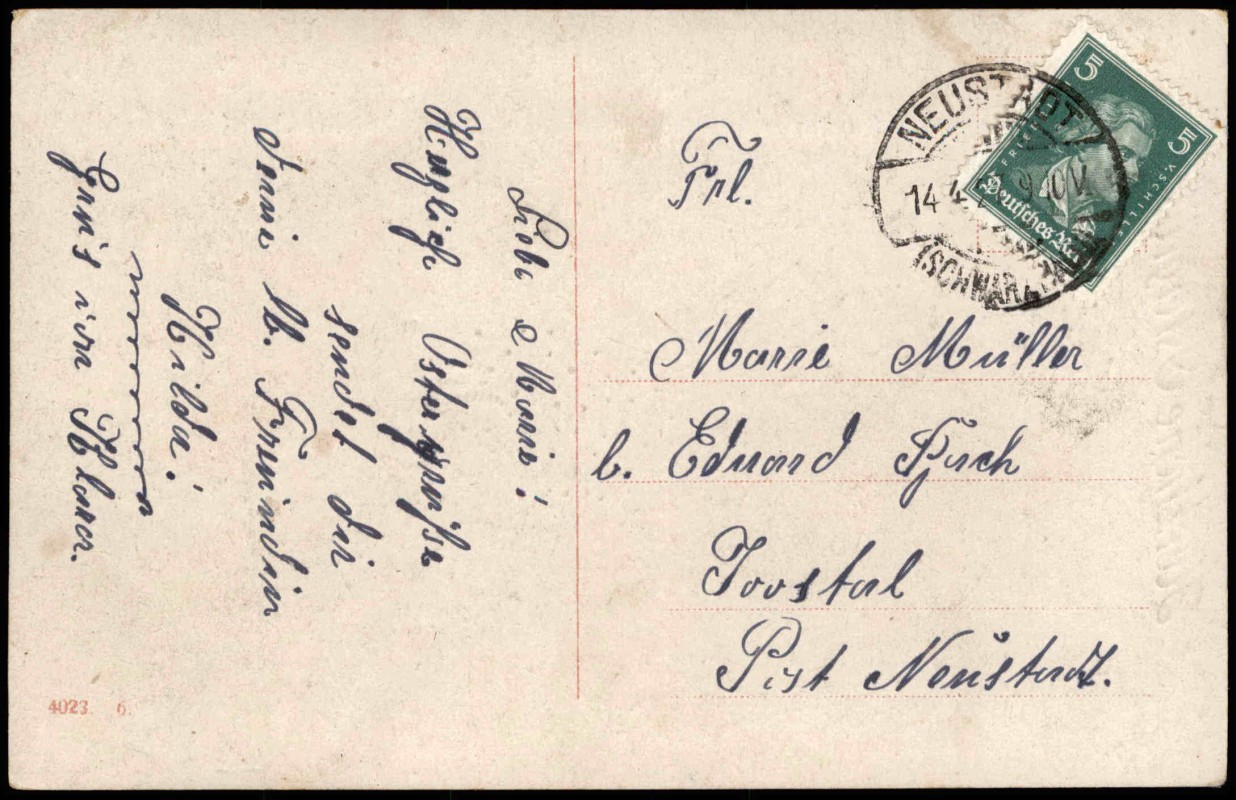 Liebe Marie!
Herzlich Ostergrüße
sendet dir
deine lb. Freundin
Hilda.
Gruß von Klara.
Frl.
Marie Müller
b. Eduard
Joostal
Post Neustadt.
NEUSTADT
14 4
9-10V
(SCHWARZWALD)
5
5
Deutsches Reich
4023. 6.